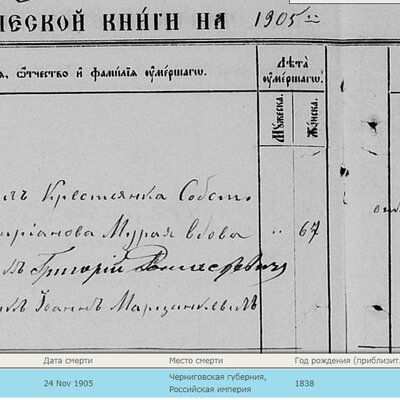 ческой книги на 1905
я, отчество и фамилія умершаго.
Лѣта умершаго.
Мужеска.
Женска.
Крестьянка Собст.
Мурая вдова " 67
Григорій
Іоаннъ Марцинкевичъ
Дата смерти Место смерти Год рождения (приблизит.
24 Nov 1905 Черниговская губерния, Российская империя 1838